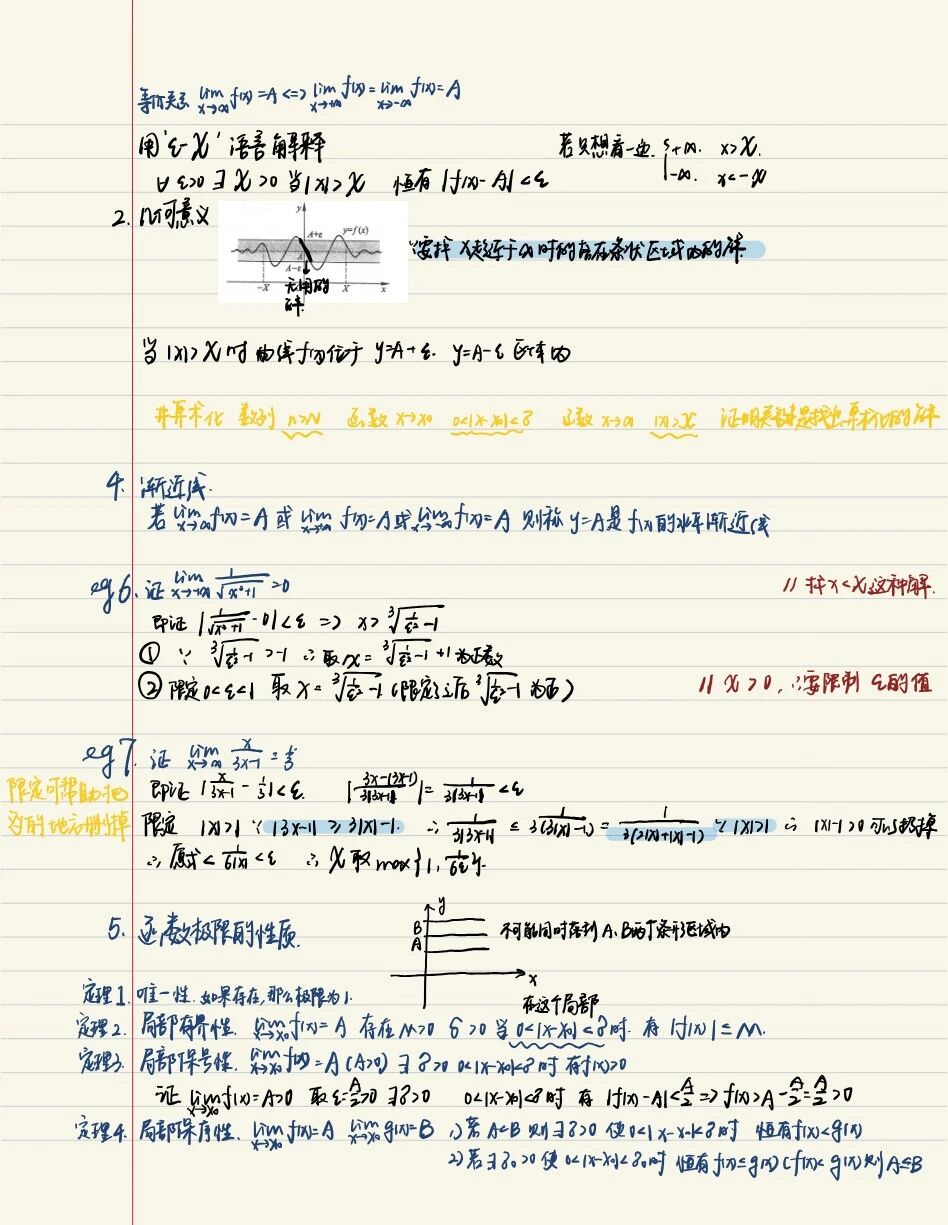 等价关系 lim x→∞ f(x)=A <=> lim x→+∞ f(x)=lim x→-∞ f(x)=A
用'ε-X'语言解释 若只想看一边. { +∞. x>X.
-∞. x<-X
∀ε>0 ∃X>0 当|x|>X 恒有|f(x)-A|<ε
2. 几何意义
y
A+ε y=f(x)
A-ε
-X X x
无用的解.
∵要找 X趋近于∞时的落在条状区域内的解
当|x|>X时 曲线f(x)位于 y=A+ε. y=A-ε 区域内
算术化 数列 n>N 函数 x→x₀ 0<|x-x₀|<δ 函数 x→∞ |x|>X 证明
4. 渐近线.
若 lim x→∞ f(x)=A 或 lim x→+∞ f(x)=A 或 lim x→-∞ f(x)=A 则称 y=A是f(x)的水平渐近线
eg6. 证 lim x→+∞ 1/√(x³+1) =0 // 找x<X这种解.
即证 |1/√(x³+1) -0|<ε => x>∛(1/ε²-1)
① ∵ ∛(1/ε²-1) >-1 ∴取X=∛(1/ε²-1)+1为正数
② 限定0<ε<1 取X=∛(1/ε²-1) (限定之后∛(1/ε²-1)为正) // X>0, ∴要限制ε的值
eg7. 证 lim x→∞ x/(3x-1) =1/3
限定可帮助把
即证 |x/(3x-1) - 1/3|<ε. |(3x-(3x-1))/3(3x-1)|=1/(3|3x-1|)<ε
的地方删掉
限定 |x|>1 ∵|3x-1|≥3|x|-1. ∴ 1/(3|3x-1|) ≤ 1/(3(3|x|-1)) = 1/(3(2|x|+|x|-1)) ∵|x|>1 ∴ |x|-1>0 可以扔掉
∴原式< 1/(6|x|) <ε ∴X取max{1, 1/(6ε)}.
5. 函数极限的性质.
y
B
A
x
不可能同时落到A、B两个条形区域内
定理1. 唯一性. 如果存在,那么极限为1.
在这个局部
定理2. 局部有界性. lim x→x₀ f(x)=A 存在M>0 δ>0 当0<|x-x₀|<δ时. 有|f(x)|≤M.
定理3. 局部保号性. lim x→x₀ f(x)=A(A>0) ∃δ>0 0<|x-x₀|<δ时 有f(x)>0
证 lim x→x₀ f(x)=A>0 取ε=A/2>0 ∃δ>0 0<|x-x₀|<δ时 有 |f(x)-A|<A/2 => f(x)>A-A/2=A/2>0
定理4. 局部保序性. lim x→x₀ f(x)=A lim x→x₀ g(x)=B 1)若A<B 则∃δ>0 使0<|x-x₀|<δ时 恒有f(x)<g(x)
2)若∃δ₀>0 使 0<|x-x₀|<δ₀时 恒有f(x)≤g(x) (f(x)<g(x)) 则A≤B